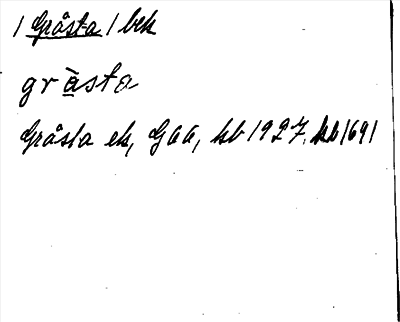 / Gråsta / bek
gràsta
Gråsta ek, GGA, kb 1927, kb 1691